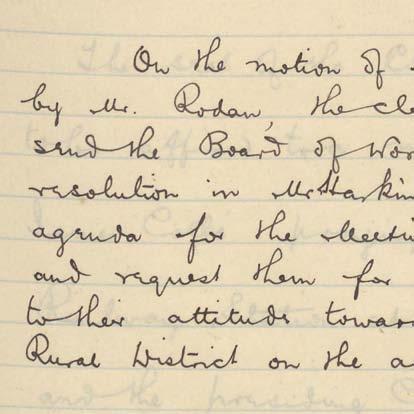 On the motion of
by Mr. Rodan, the cle
send the Board of Wor
resolution in Mr Harkin
agenda for the Meeti
and request them for
to their attitude towar
Rural District on the a